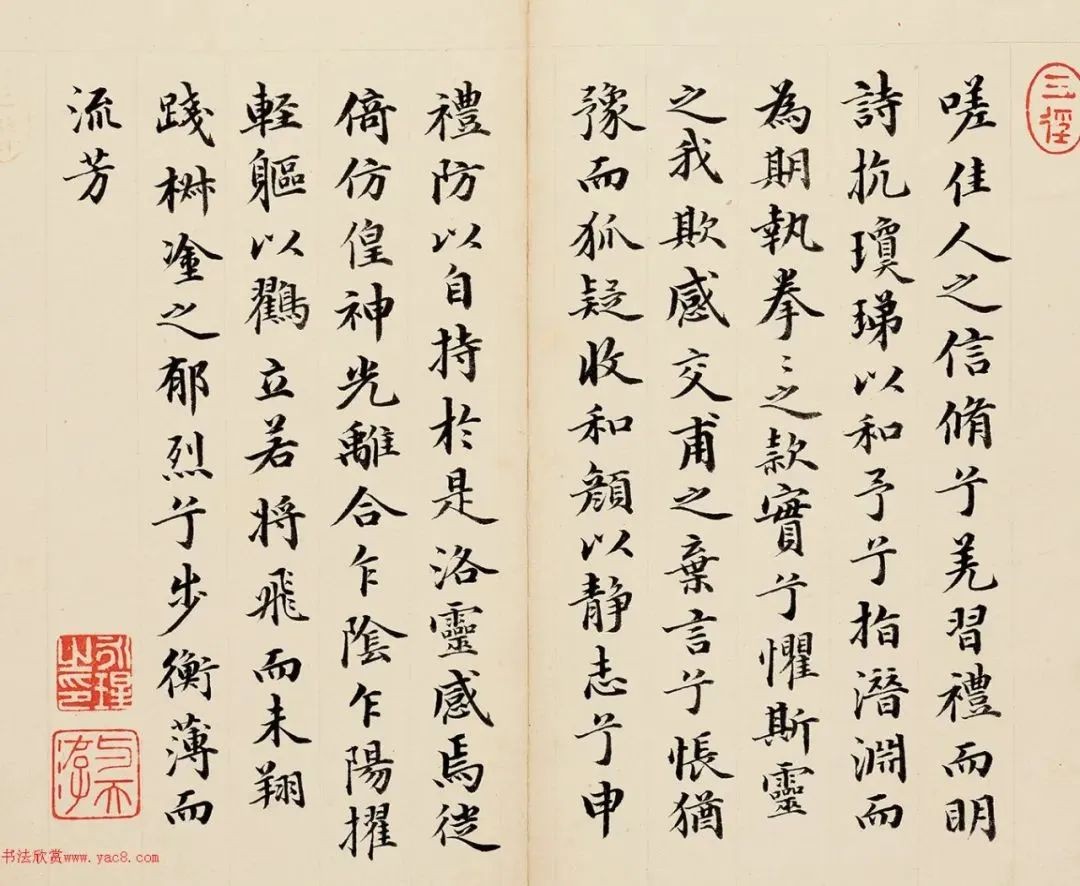 三徑
嗟佳人之信脩兮羌習禮而明
詩抗瓊珶以和予兮指潛淵而
為期執拳〻之款實兮懼斯靈
之我欺感交甫之棄言兮悵猶
豫而狐疑收和顏以静志兮申
禮防以自持於是洛靈感焉徙
倚仿偟神光離合乍陰乍陽擢
軽軀以鸛立若将飛而未翔
踐椒塗之郁烈兮步衡薄而
流芳
永瑆之印
书法欣赏www.yac8.com